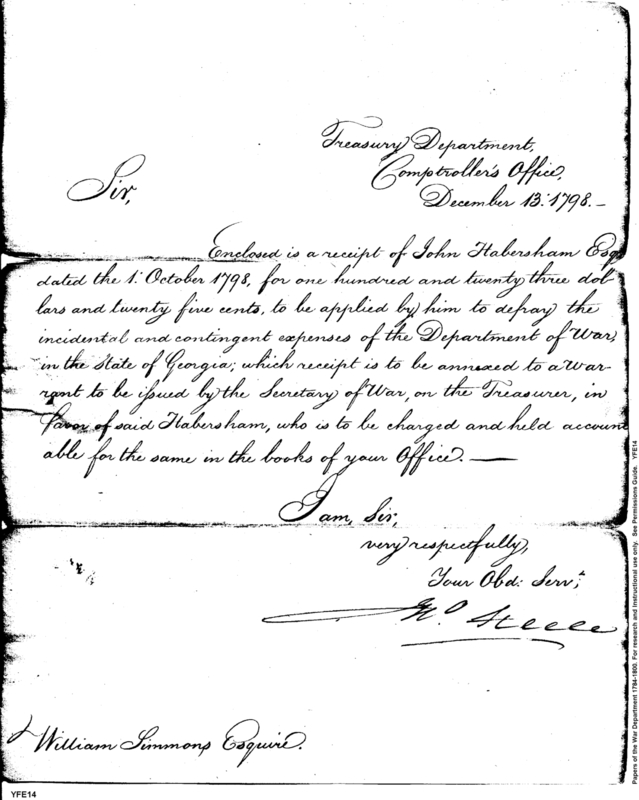 Treasury Department,
Comptroller's Office,
December 13: 1798.-
Sir,
Enclosed is a receipt of John Habersham Esqr
dated the 1: October 1798, for one hundred and twenty three dol-
lars and twenty five cents, to be applied by him to defray the
incidental and contingent expenses of the Department of War,
in the State of Georgia; which receipt is to be annexed to a war-
rant to be issued by the Secretary of War, on the Treasurer, in
favor of said Habersham, who is to be charged and held account
able for the same in the books of your Office. —
I am, Sir,
very respectfully,
Your Obd: Servt;
Jno. Steele
William Simmons Esquire.
YFE14
Papers of the War Department 1784-1800. For research and instructional use only. See Permissions Guide. YFE14